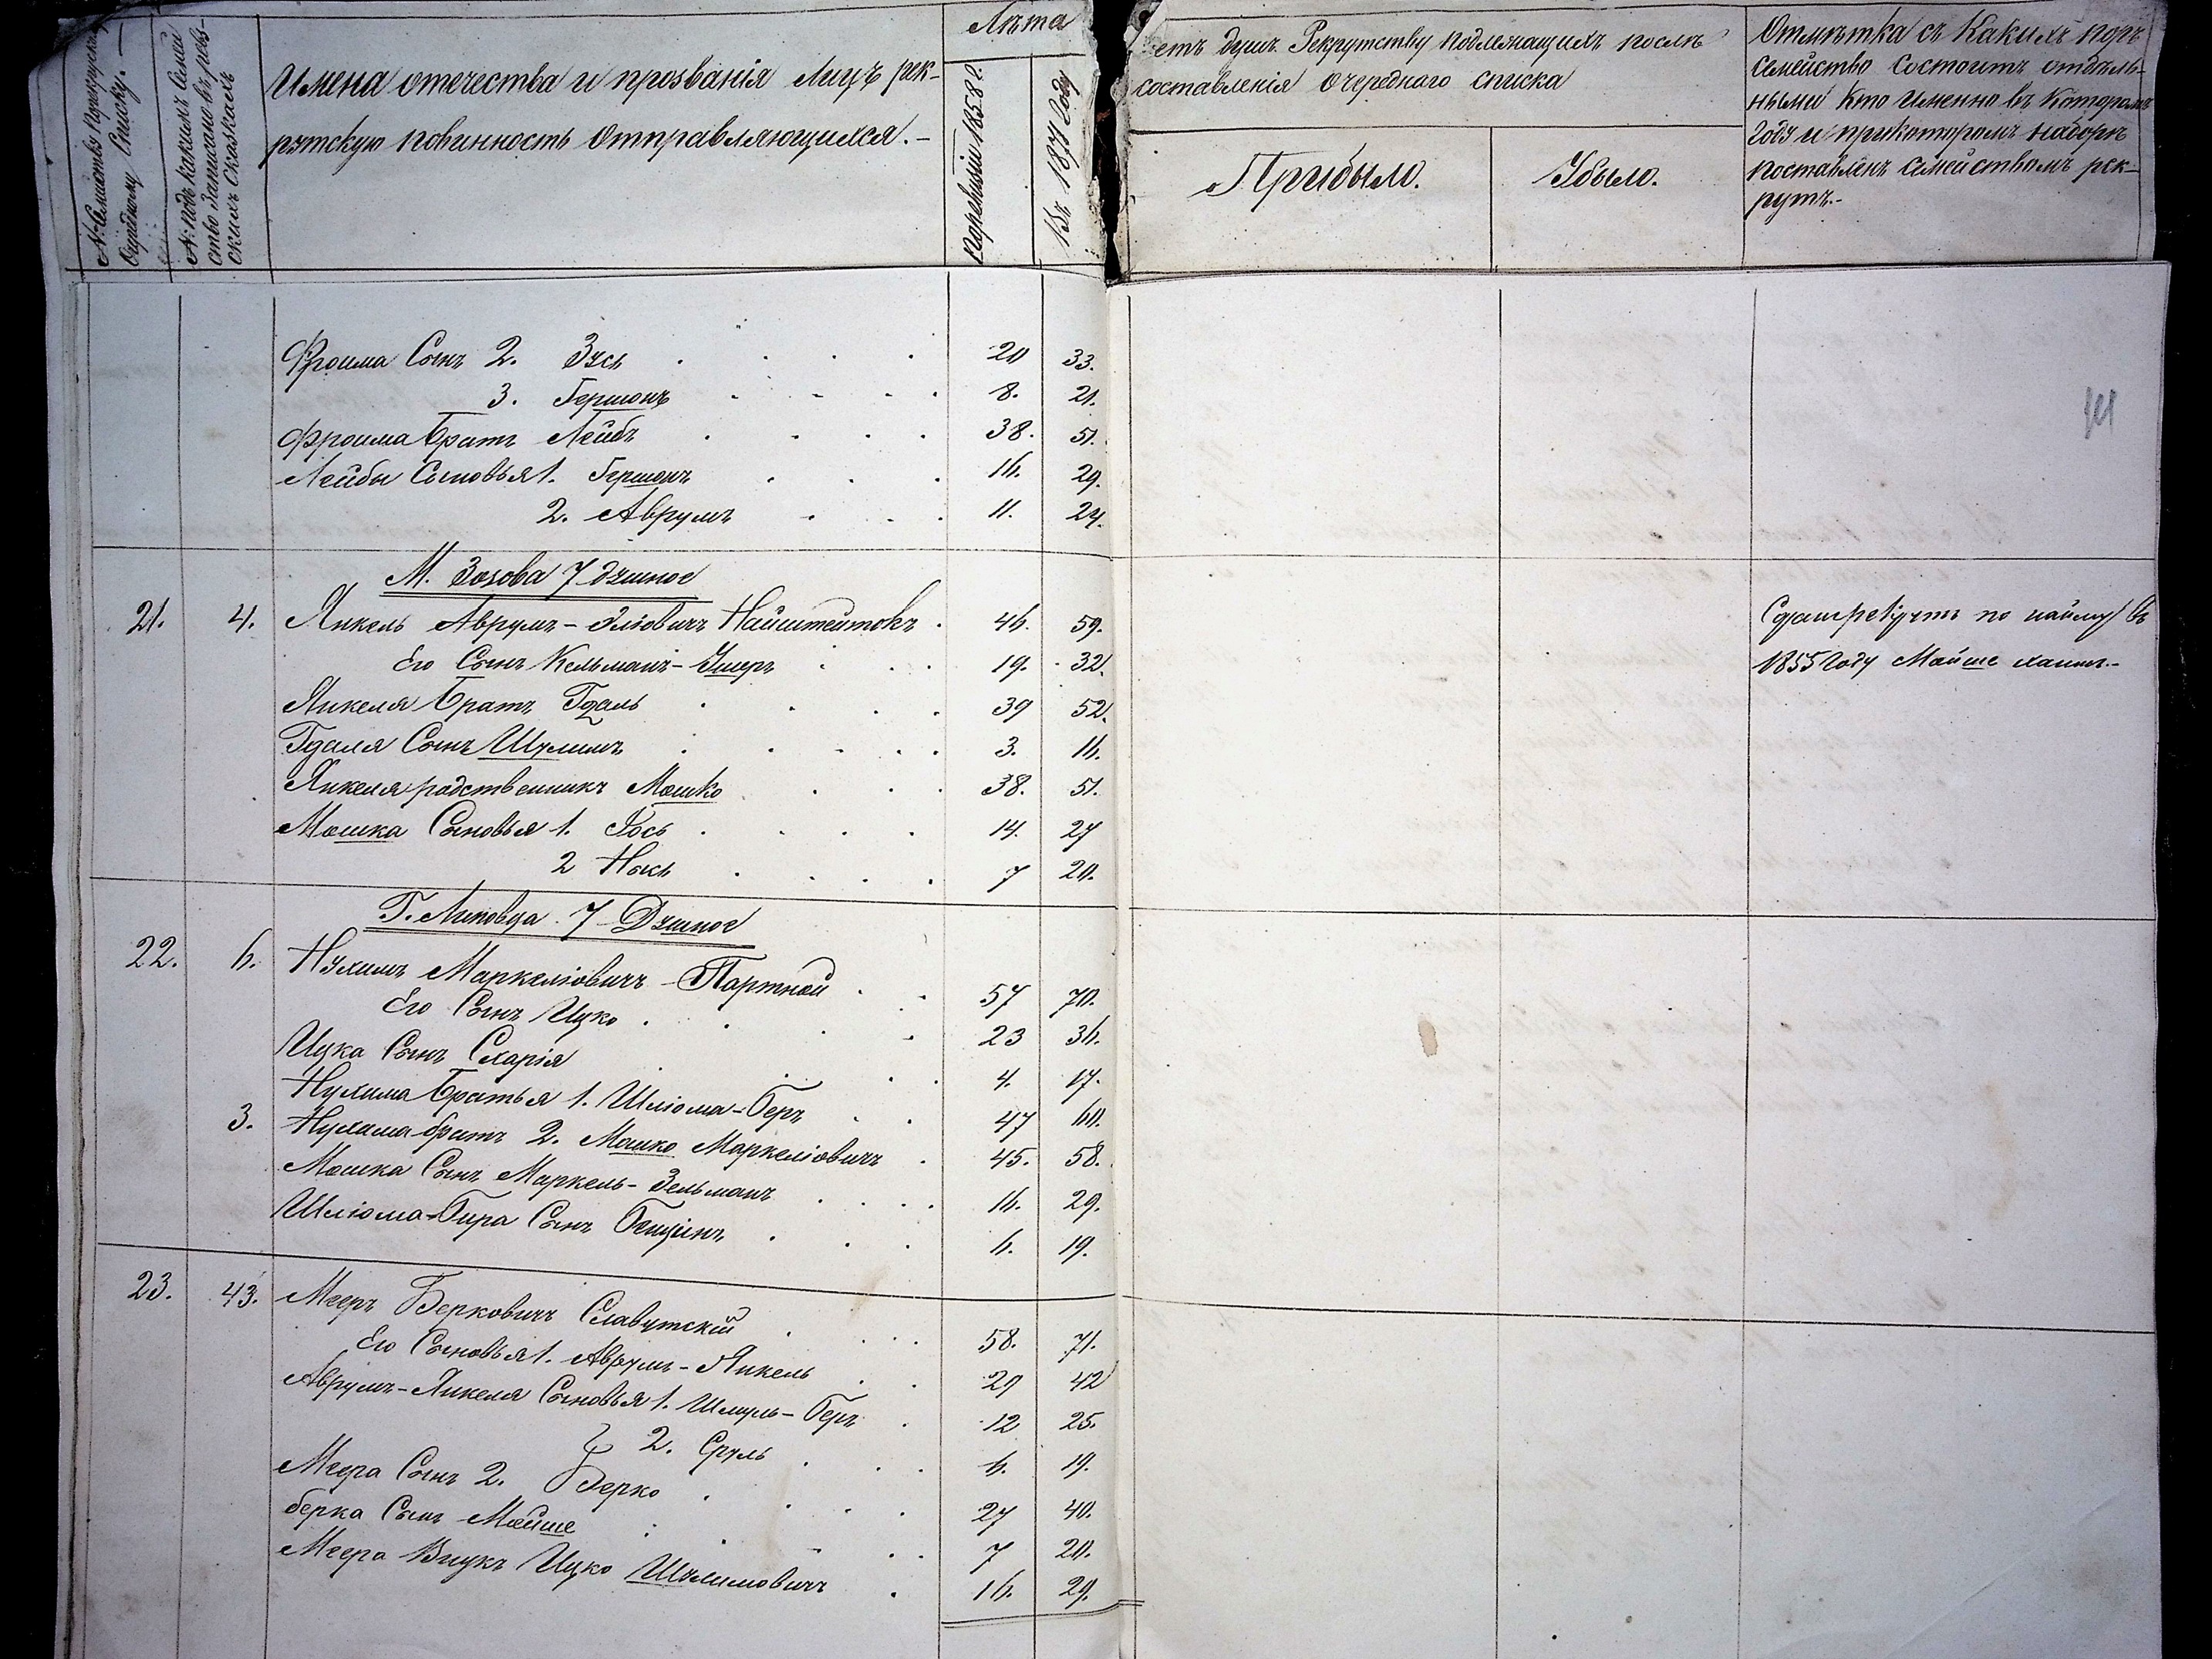 № Семейства по рекрутскому Очередному Списку. —
№: подъ какимъ Семейство Записано въ ревизскихъ Сказкахъ
Имена отечества и прозванія Лицъ рек-
рутскую повинность Отправляющихся. -
Лѣта
По ревизіи 1858 г.
Въ 1871 Году
етъ душъ Рекрутству подлежащихъ послѣ
составленія Очереднаго списка
Прибыло.
Убыло.
Отмѣтка съ Какихъ поръ
Семейство Состоитъ отдѣль-
нымъ Кто Именно въ Которомъ
Году и при которомъ наборѣ
поставленъ Семействомъ рек-
рутъ. -
Фроима Сынъ 2. Зусь 20 33.
3. Гершонъ 8. 21.
Фроима Братъ Лейбъ 38. 51.
Лейбы Сыновья 1. Гершонъ 16. 29.
2. Аврумъ 11. 24.
М. Зозова 7 душное
21. 4. Янкель Аврумъ-Эліовичъ Найштейтокъ 46. 59. Сданъ рекрутъ по найму въ
Его Сынъ Кельманъ-Ушеръ 19. 32. 1855 Году Мойше
Янкеля Братъ Гдаль 39 52.
Гдаля Сынъ Шулимъ 3. 16.
Янкеля родственникъ Мошко 38. 51.
Мошка Сыновья 1. Іось 14. 27
2 7 20.
Г. Липовца 7 Душное
22. 6. Нухимъ Маркеліовичъ-Портной 57 70.
Его Сынъ Ицко 23 36.
Ицка Сынъ Схарія 4. 17.
Нухима Братья 1. Шліома-Беръ 47 60.
3. Нухима братъ 2. Мошко Маркеліовичъ 45. 58.
Мошка Сынъ Маркель-Зельманъ 16. 29.
Шліома-Бера Сынъ 6. 19.
23. 43. Мееръ Берковичъ Славутскій 58. 71.
Его Сыновья 1. Аврумъ-Янкель 29 42
Аврумъ-Янкеля Сыновья 1. Шмуль-Беръ 12 25.
2. Сруль 6. 19.
Меера Сынъ 2. Берко 27 40.
берка Сынъ Мойше 7 20.
Меера Внукъ Ицко Шулимовичъ 16. 29.